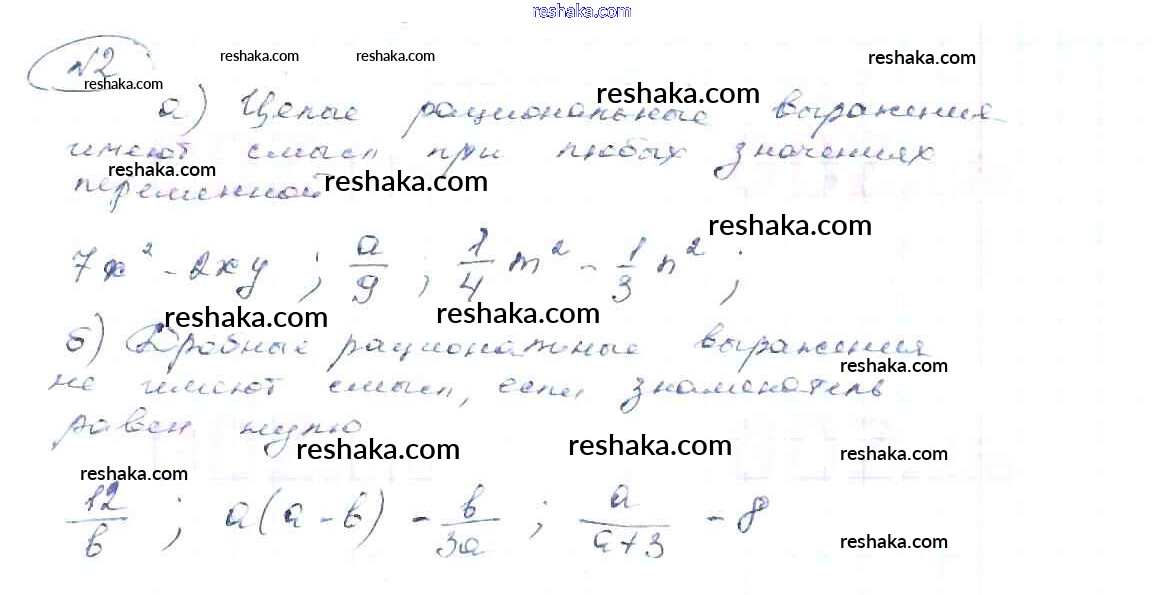 reshaka.com
№2 reshaka.com reshaka.com reshaka.com
reshaka.com
а) Целые рациональные выражения reshaka.com
имеют смысл при любых значениях
reshaka.com
переменной reshaka.com
reshaka.com
7x² - 2xy ; a/9 ; 1/4 m² - 1/3 n² ;
reshaka.com reshaka.com
б) Дробные рациональные выражения
reshaka.com
не имеют смысл, если знаменатель
равен нулю
reshaka.com reshaka.com reshaka.com
reshaka.com
12/b ; a(a - b) - b/3a ; a/a+3 - 8
reshaka.com